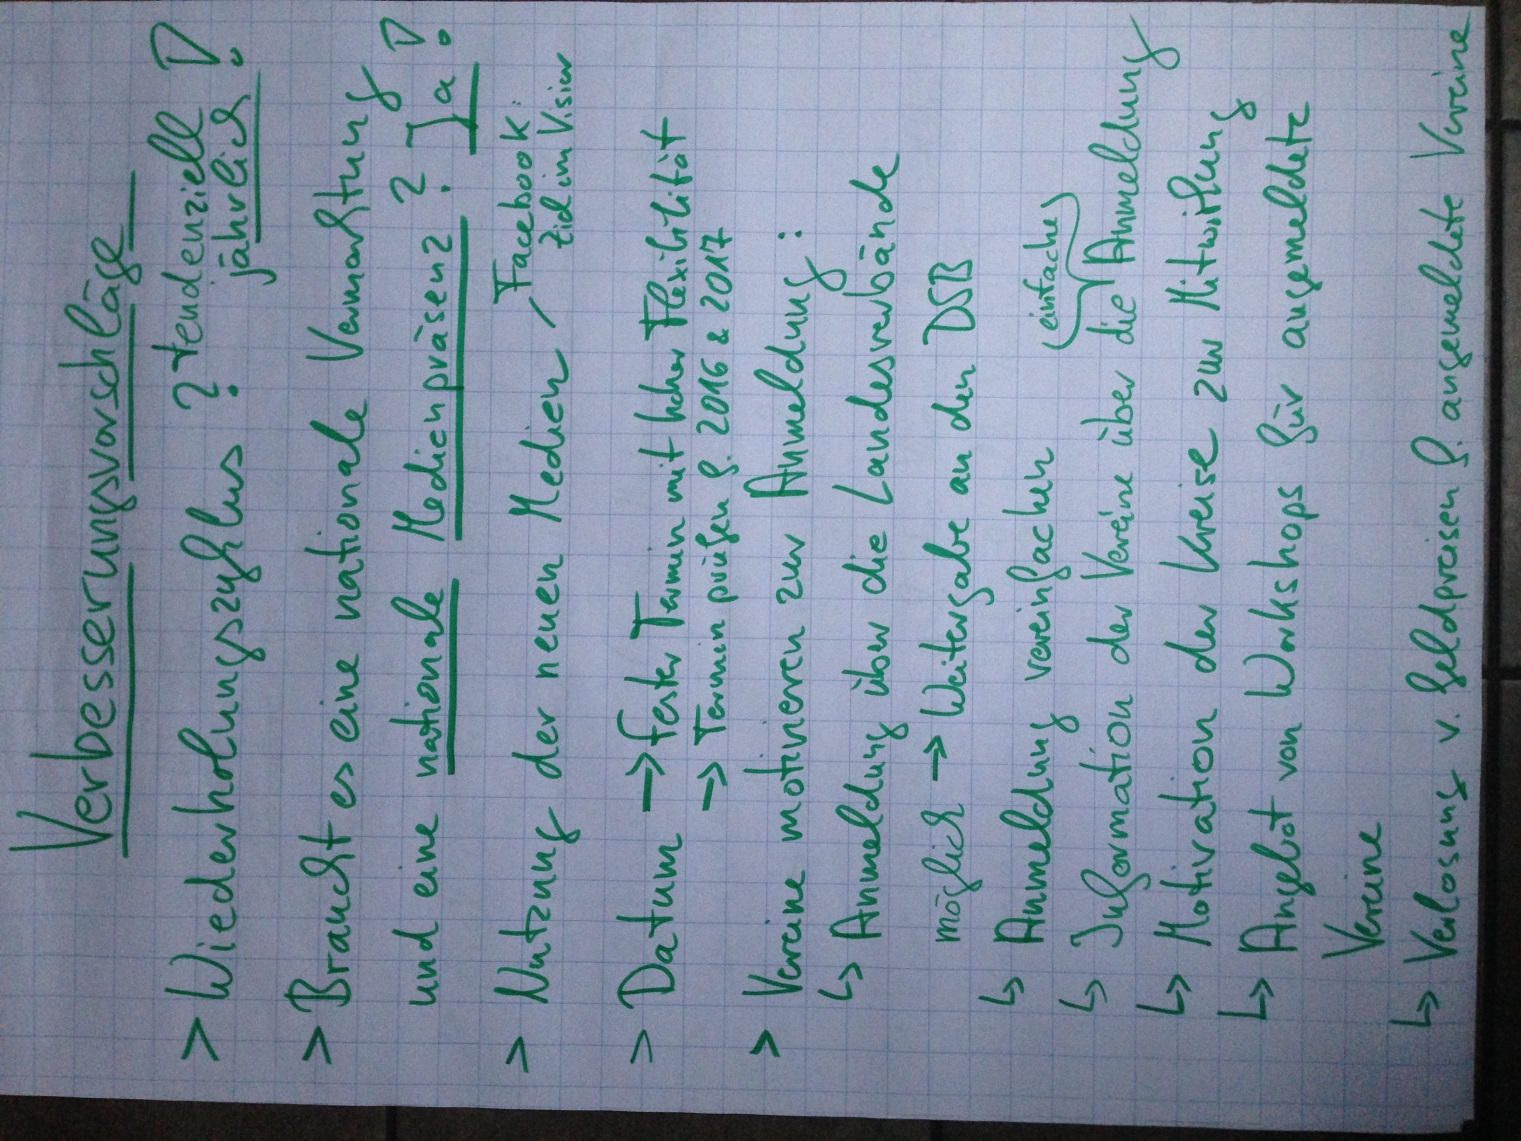 Verbesserungsvorschläge
> Wiederholungszyklus ? tendenziell
jährlich !
> Braucht es eine nationale Vermarktung
und eine nationale Medienpräsenz ? ? Ja !
> Nutzung der neuen Medien / Facebook:
Ziel im Visier
> Datum → fester Termin mit hoher Flexibilität
→ Termin prüfen f. 2016 & 2017
> Vereine motivieren zur Anmeldung:
↳ Anmeldung über die Landesverbände
möglich → Weitergabe an den DSB
↳ Anmeldung vereinfachen
(einfache)
↳ Information der Vereine über die Anmeldung
↳ Motivation der Kreise zur Mitwirkung
↳ Angebot von Workshops für angemeldete
Vereine
↳ Verlosung v. Geldpreisen f. angemeldete Vereine